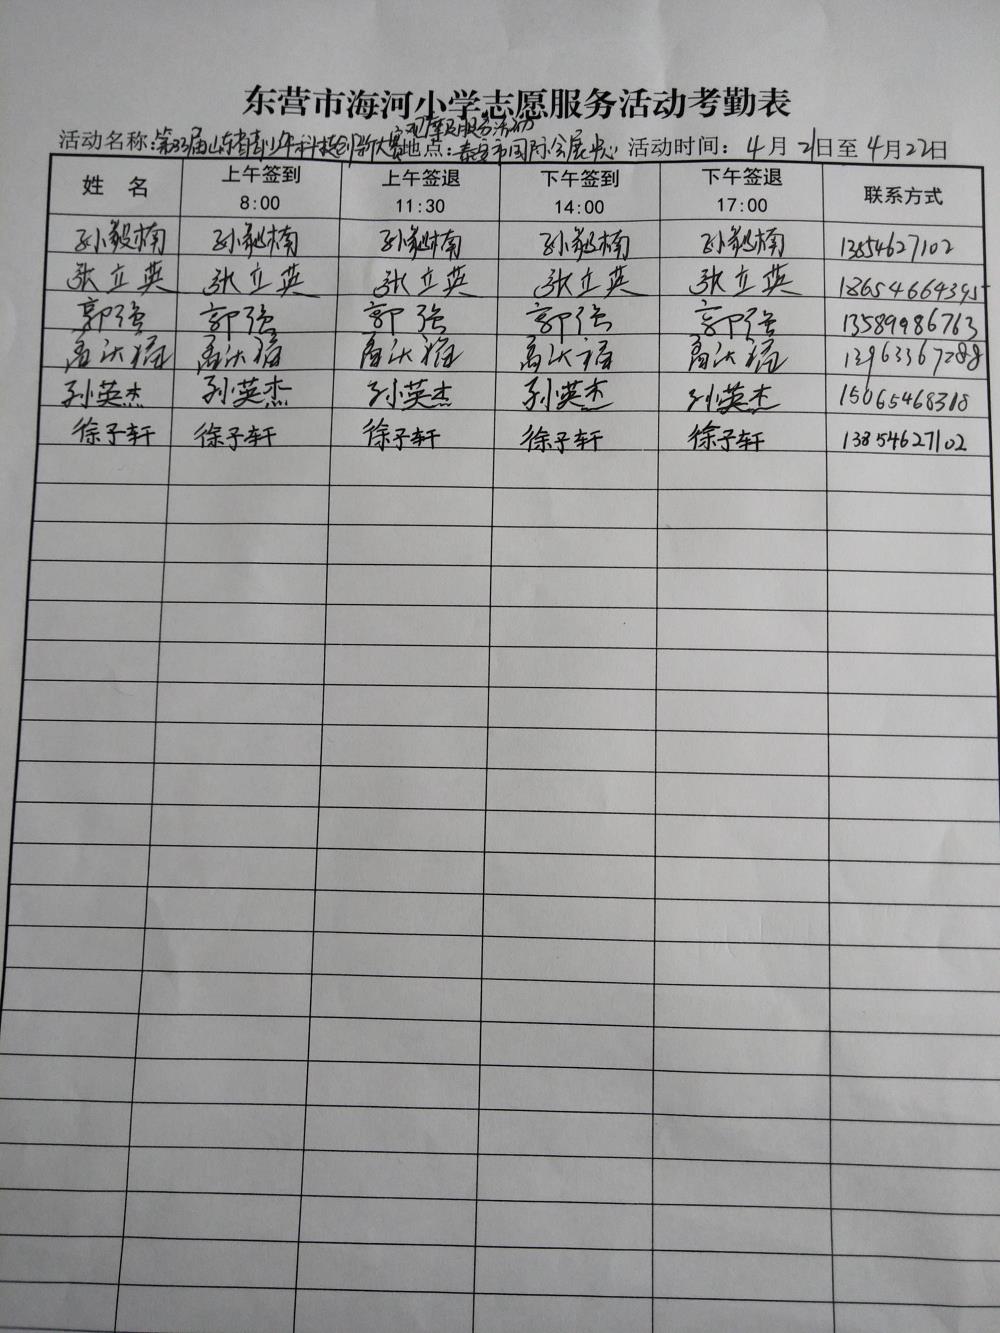 东营市海河小学志愿服务活动考勤表
观摩及服务活动
活动名称:第33届山东省青少年科技创新大赛 地点:泰安市国际会展中心 活动时间: 4月21日至4月22日
姓 名 上午签到 8:00 上午签退 11:30 下午签到 14:00 下午签退 17:00 联系方式
孙毅楠 孙毅楠 孙毅楠 孙毅楠 孙毅楠 13854627102
张立英 张立英 张立英 张立英 张立英 18654664395
郭强 郭强 郭强 郭强 郭强 13589986763
高 高 高 高 高 13963367288
孙英杰 孙英杰 孙英杰 孙英杰 孙英杰 15065468318
徐子轩 徐子轩 徐子轩 徐子轩 徐子轩 13854627102